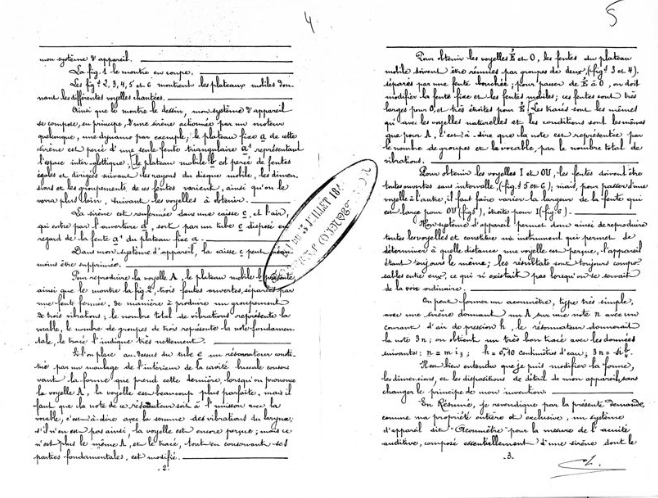 4
mon système d'appareil.
La fig. 1 le montre en coupe.
Les figs 2, 3, 4, 5 et 6 montrent les plateaux mobiles don-
nant les différentes voyelles chantées.
Ainsi que le montre le dessin, mon système d'appareil
se compose, en principe, d'une sirène actionnée par un moteur
quelconque, une dynamo par exemple; le plateau fixe a de cette
sirène est percé d'une seule fente triangulaire a' représentant
l'espace inter-glottique; le plateau mobile b est percé de fentes
égales et dirigées suivant les rayons du disque mobile, les dimen-
sions et les groupements de ces fentes varient, ainsi qu'on le
verra plus loin, suivant les voyelles à obtenir.
La sirène est renfermée dans une caisse c, et l'air,
qui entre par l'ouverture d, sort par un tube e disposé en
regard de la fente a' du plateau fixe a.
Dans mon système d'appareil, la caisse c peut
moins être supprimée.
Pour reproduire la voyelle A, le plateau mobile b présente
ainsi que le montre la fig. 2, trois fentes ouvertes, séparées par
une fente fermée, de manière à produire un groupement
de trois vibrations; le nombre total de vibrations représente la
vocable, le nombre de groupes de trois représente la note fondamen-
tale, le tracé l'indique très nettement.
Si l'on place au-dessus du tube e un résonnateur consti-
tué par un moulage de l'intérieur de la cavité buccale conser-
vant la forme que prend cette dernière, lorsqu'on prononce
la voyelle A, la voyelle est beaucoup plus parfaite, mais il
faut que la note de ce résonnateur soit à l'unisson avec la
vocable, c'est-à-dire avec la somme des vibrations du larynx,
s'il n'en est pas ainsi, la voyelle est encore perçue; mais ce
n'est plus le même A, et le tracé, tout en conservant ses
parties fondamentales, est modifié.
.2.
5
Pour obtenir les voyelles É et O, les fentes du plateau
mobile doivent être réunies par groupes de deux, (figs 3 et 4).
séparés par une fente bouchée; pour passer de É à O, on doit
modifier la fente fixe et les fentes mobiles; ces fentes sont très
larges pour O, et très étroites pour É. Les tracés sont les mêmes
qu'avec les voyelles naturelles et les conditions sont les mêmes
que pour A, c'est-à-dire que la note est représentée par
le nombre de groupes et la vocable, par le nombre total de
vibrations.
Pour obtenir les voyelles I et OU, les fentes doivent être
toutes ouvertes sans intervalle (figs 5 et 6); mais, pour passer d'une
voyelle à l'autre, il faut faire varier la largeur de la fente qui
est large pour OU (fig 5), étroite pour I (fig 6).
Mon système d'appareil permet donc ainsi de reproduire
toutes les voyelles et constitue un instrument qui permet de
déterminer à quelle distance une voyelle est perçue, l'appareil
étant toujours le même; les résultats sont toujours compa-
rables entre eux, ce qui n'existait pas lorsqu'on se servait
de la voix ordinaire.
On peut former un acoumètre, type très simple,
avec une sirène donnant un A sur une note n avec un
courant d'air de pression h, le résonnateur donnerait
la note 3n; on obtient un très bon tracé avec les données
suivantes:
Bien entendu que je puis modifier la forme,
les dimensions, et les dispositions de détail de mon appareil, sans
changer le principe de mon invention.
En Résumé, je revendique par la présente demande,
comme ma propriété entière et exclusive, un système
d'appareil dit pour la mesure de l'acuité
auditive, composé essentiellement d'une sirène dont le
.3.